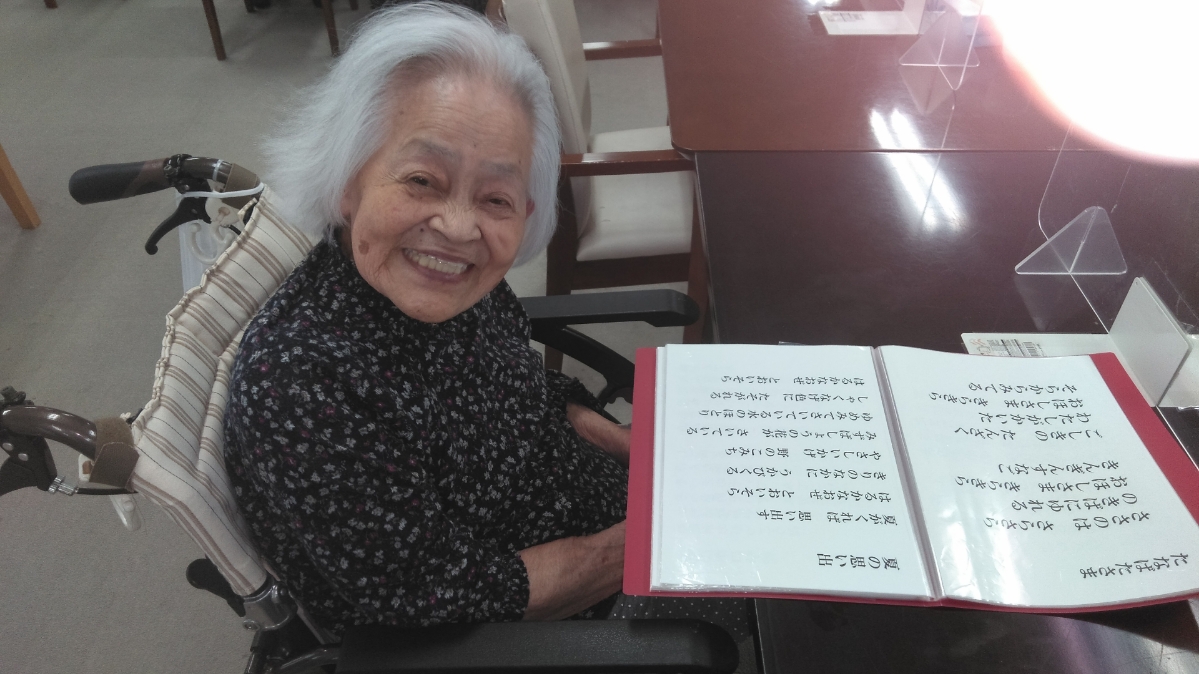 たなばたさま
ささのは さらさら
のきばにゆれる
おほしさま きらきら
きんぎんすなご
ごしきの たんざく
わたしがかいた
おほしさま きらきら
そらからみてる
夏の思い出
夏がくれば 思い出す
はるかなおぜ とおいそら
きりのなかに うかびくる
やさしいかげ 野のこみち
みずばしょうの花が さいている
ゆめみてさいている水のほとり
しゃくなげ色に たそがれる
はるかなおぜ とおいそら